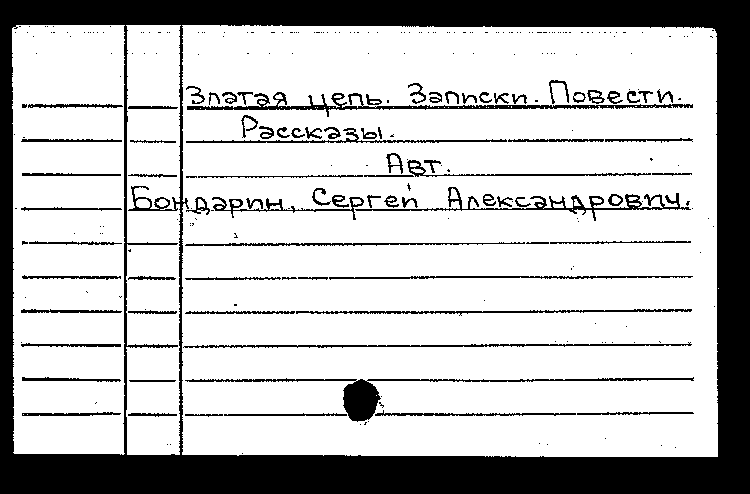 Златая цепь. Записки. Повести.
Рассказы.
Авт.
Бондарин, Сергей Александрович.